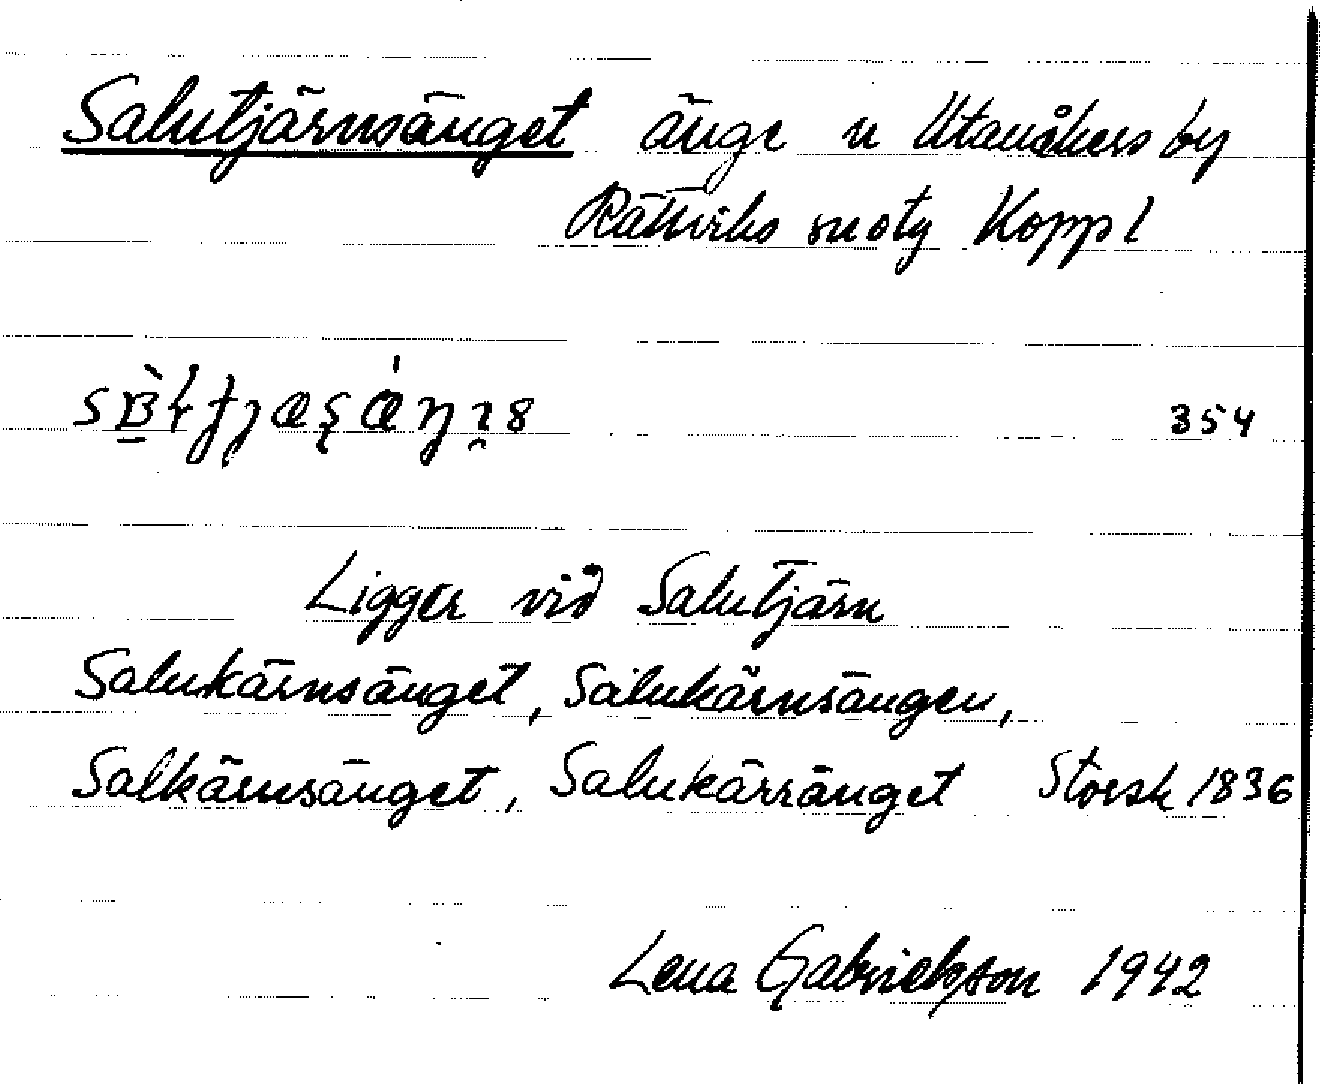 Salutjärnsänget änge n Utanåkers by
Rättviks sn oty Koppl
354
Ligger vid Salutjärn
Salukärnsänget, Salukärnsängen,
Salkärnsänget, Salukärränget Storsk 1836
Lena Gabrielsson 1942